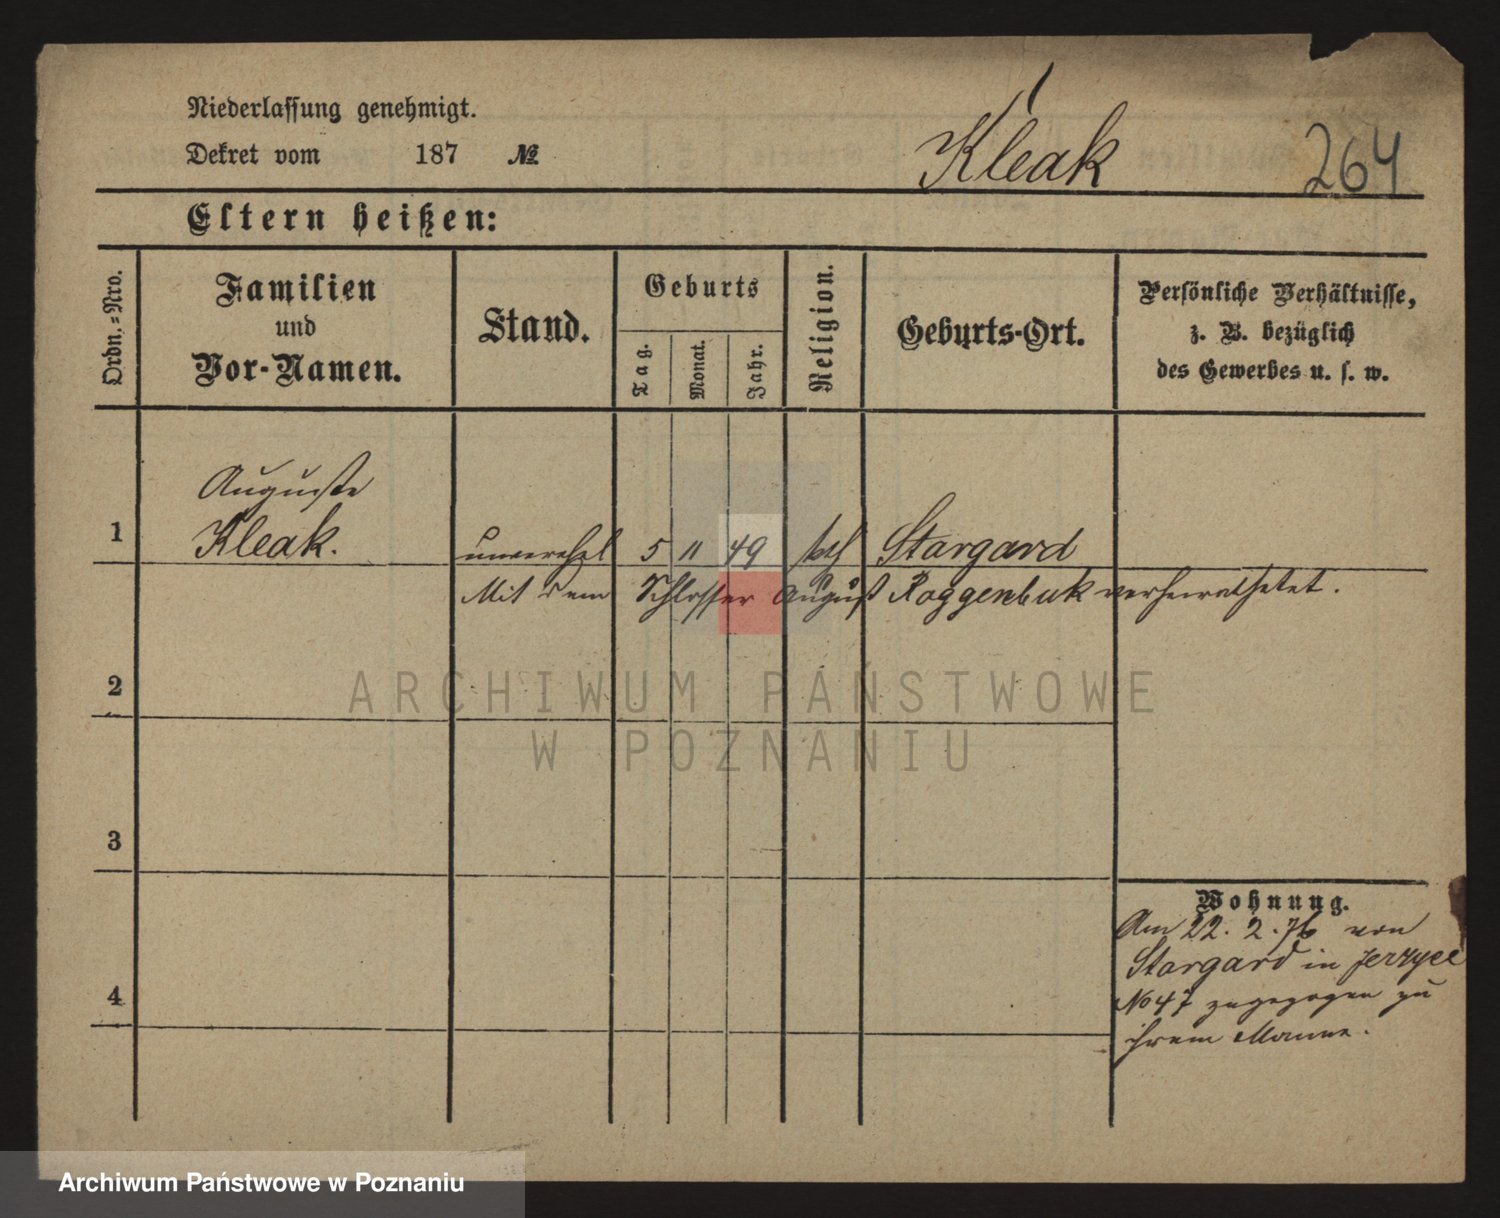 Niederlassung genehmigt.
Dekret vom 187 №
Kleak 264
Eltern heißen:
Ordn.-Nro.
Familien
und
Vor-Namen.
Stand.
Geburts
Tag.
Monat.
Jahr.
Religion.
Geburts-Ort.
Persönliche Verhältnisse,
z. B. bezüglich
des Gewerbes u. s. w.
Auguste
1 Kleak. unverehel 5 11 49 kath Stargard
Mit dem Schlosser August Roggenbuk verheirathetet.
2
ARCHIWUM PAŃSTWOWE
W POZNANIU
3
Wohnung.
Am 22. 2. 76 von
Stargard in Jerzyce
No 47 zugezogen zu
ihrem Manne.
4
Archiwum Państwowe w Poznaniu